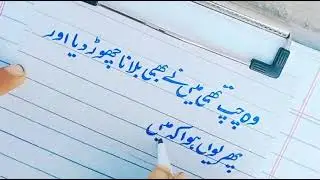 وہ چپ تھی میں نے بھی بلانا چھوڑ دیا اور
پھر یوں ہوا کہ میں